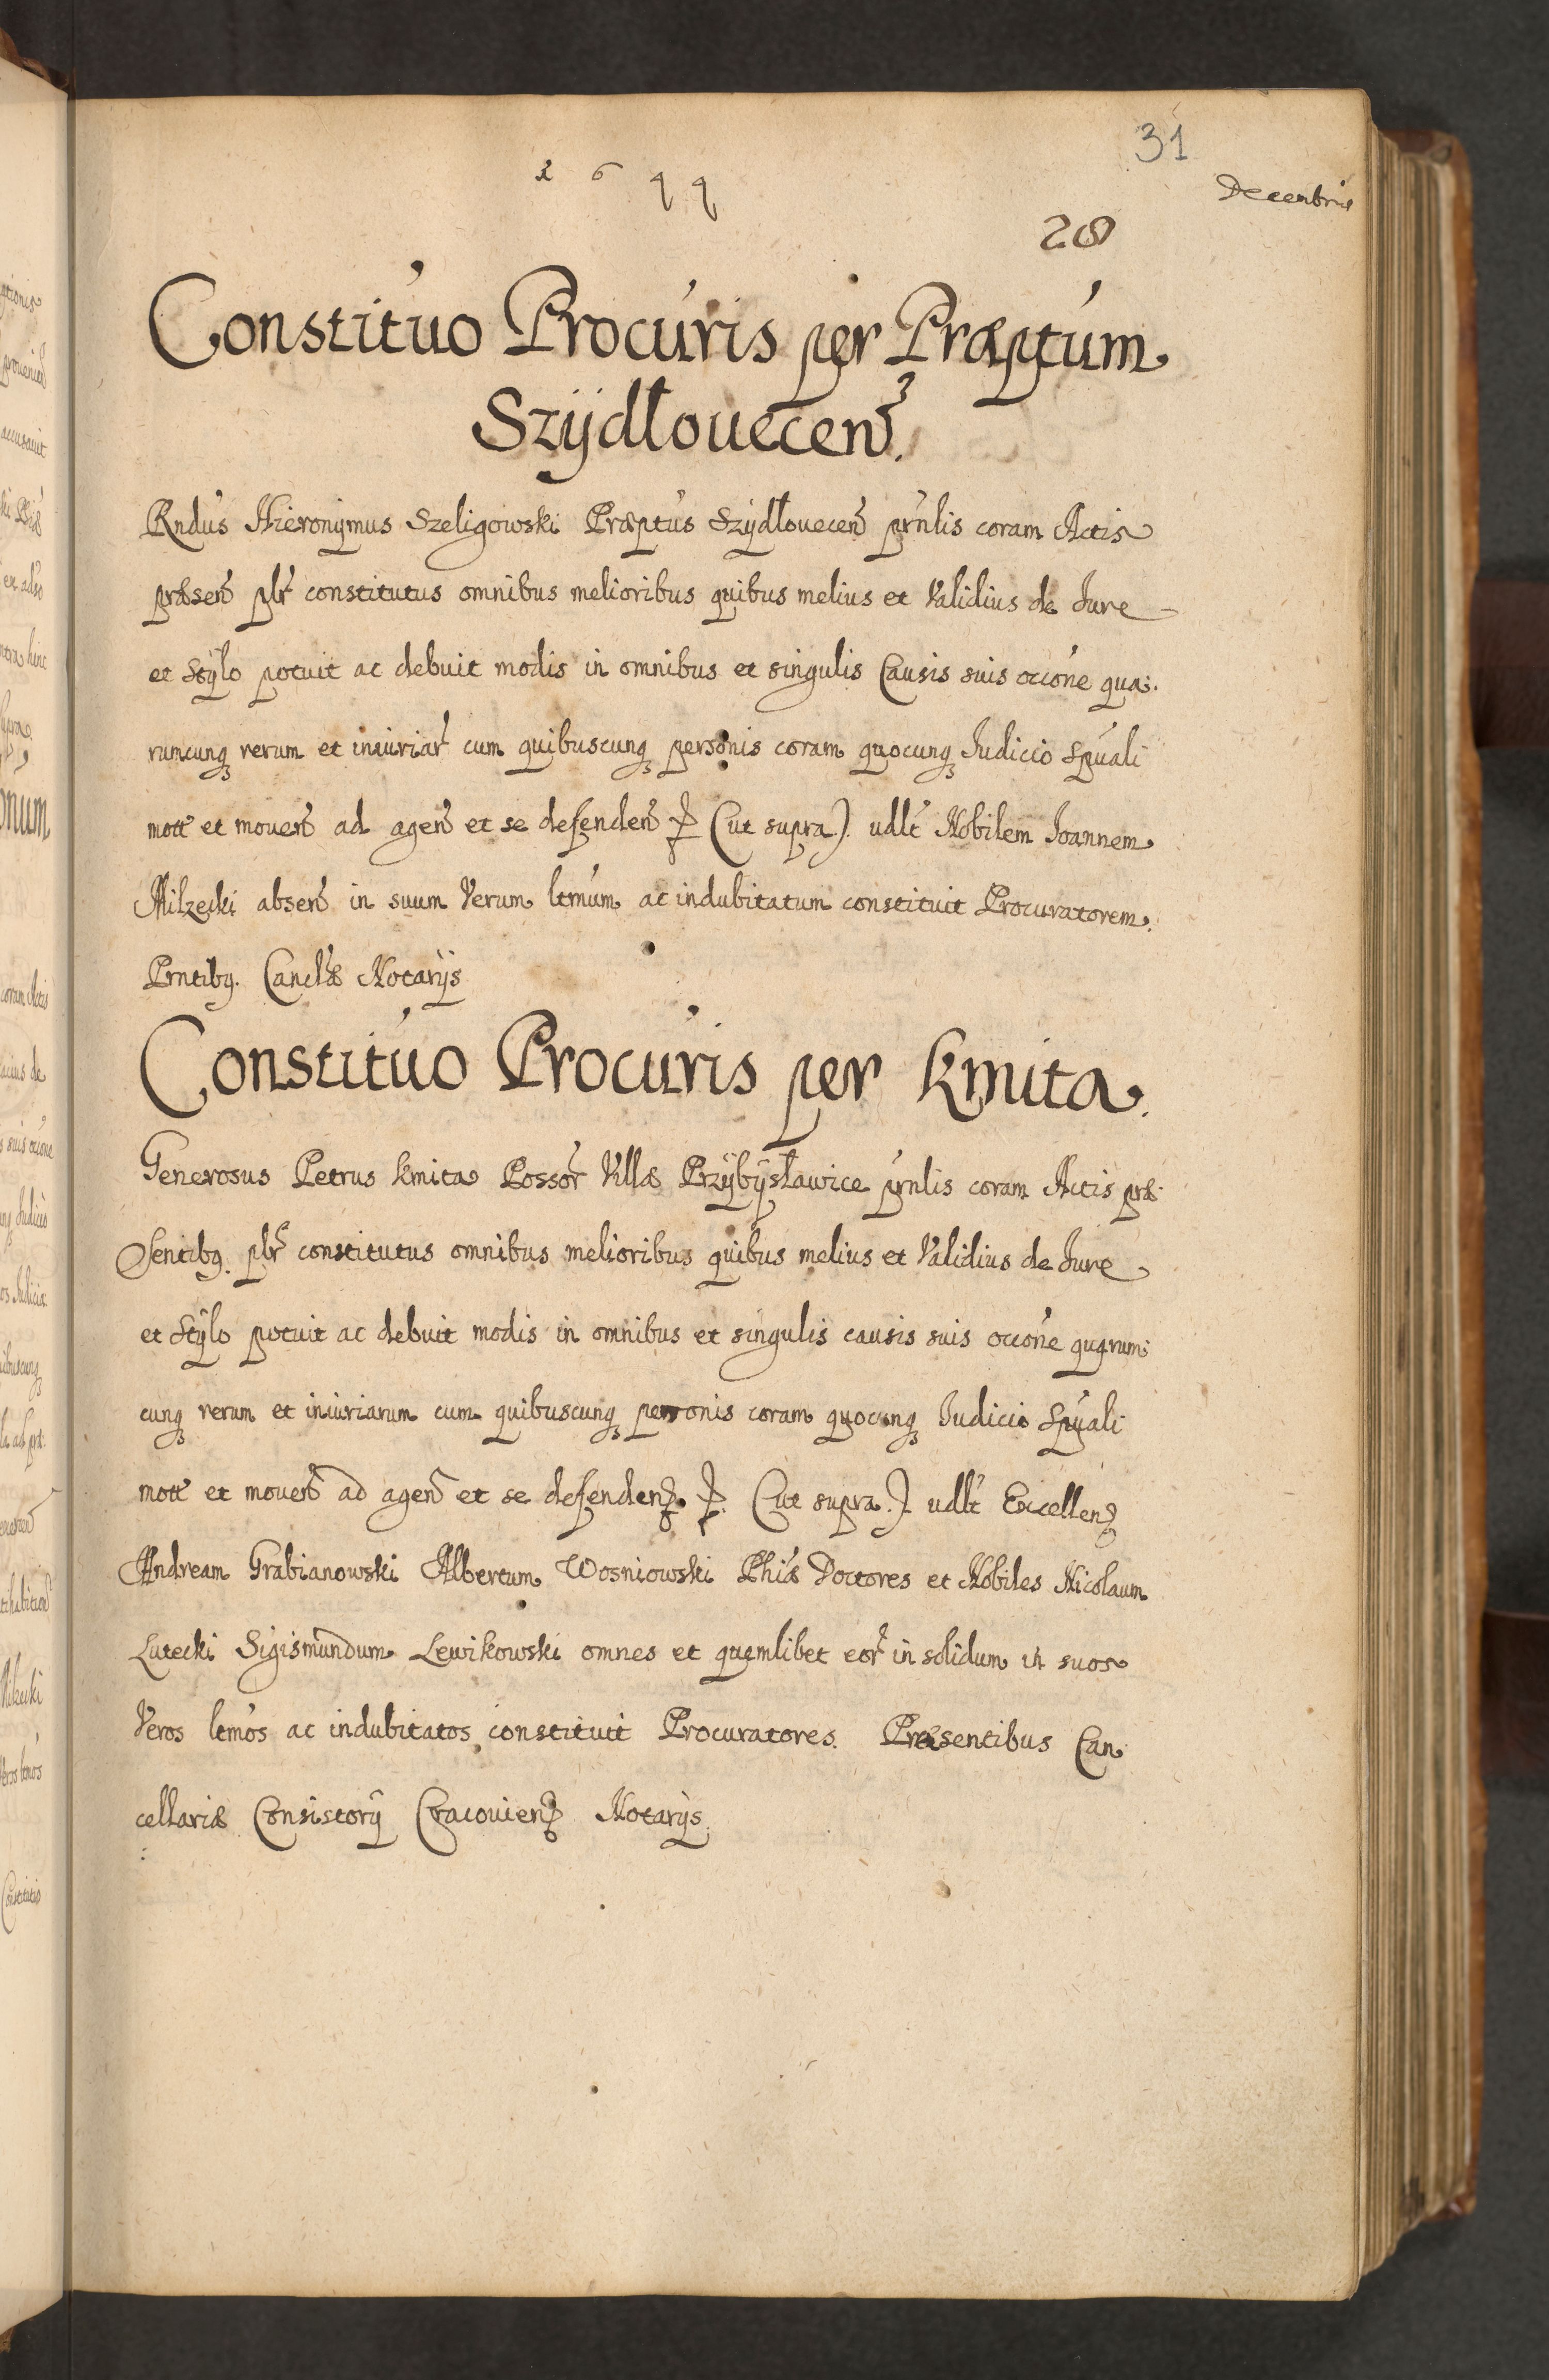 31
1 6 4 4
Decembris
28
Constituo Procuris per Præptum
Szydłouecen.
Rndus Hieronymus Szeligowski Præptus Szydłouecen prnlis coram Actis
præsen plr constitutus omnibus melioribus quibus melius et Validius de Iure
et Stylo potuit ac debuit modis in omnibus et singulis Causis suis occone qua:
rumcunq rerum et iniuriar cum quibuscunq personis coram quocunq Iudicio Spuali
mott et mouen ad agen et se defenden (ut supra) udlt Nobilem Ioannem
Milzecki absen in suum Verum ltmum ac indubitatum constituit Procuratorem.
Prntibq. Canclæ Notarijs
Constituo Procuris per Kmita.
Generosus Petrus Kmita Possor Villæ Przybysławice prnlis coram Actis præ:
sentibq. plr constitutus omnibus melioribus quibus melius et Validius de Iure
et Stylo potuit ac debuit modis in omnibus et singulis causis suis occone quarum:
cunq rerum et iniuriarum cum quibuscunq personis coram quocunq Iudicio Spuali
mott et mouen ad agen et se defenden. (ut supra.) udlt Excellen
Andream Grabianowski Albertum Wosniowski Phiæ Doctores et Nobiles Nicolaum
Lutecki Sigismundum Lewikowski omnes et quemlibet eor in solidum in suos
Veros ltmos ac indubitatos constituit Procuratores. Præsentibus Can
cellariæ Consistorij Cracouien Notarijs